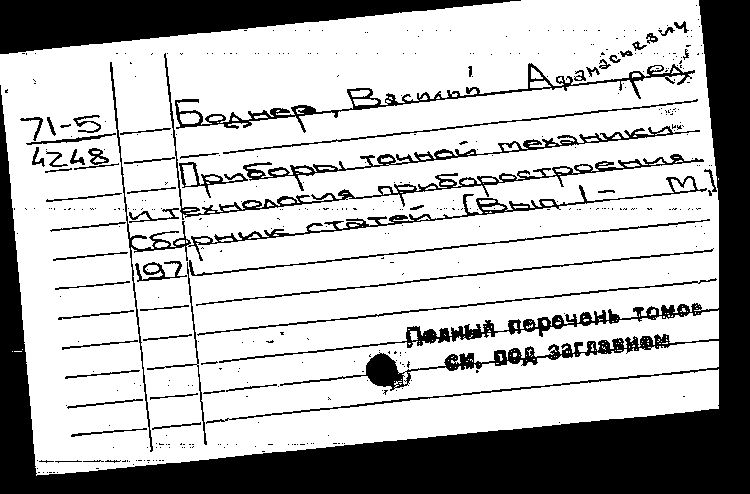 71-5
4248
Боднер, Василий Афанасьевич
, ред.
Приборы точной механики
и технология приборостроения.
Сборник статей. [Вып. 1- М.]
1971
Полный перечень томов
см. под заглавием